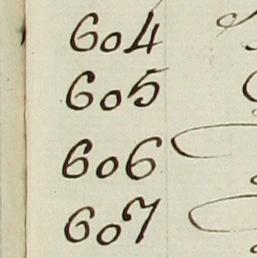 604
605
606
607